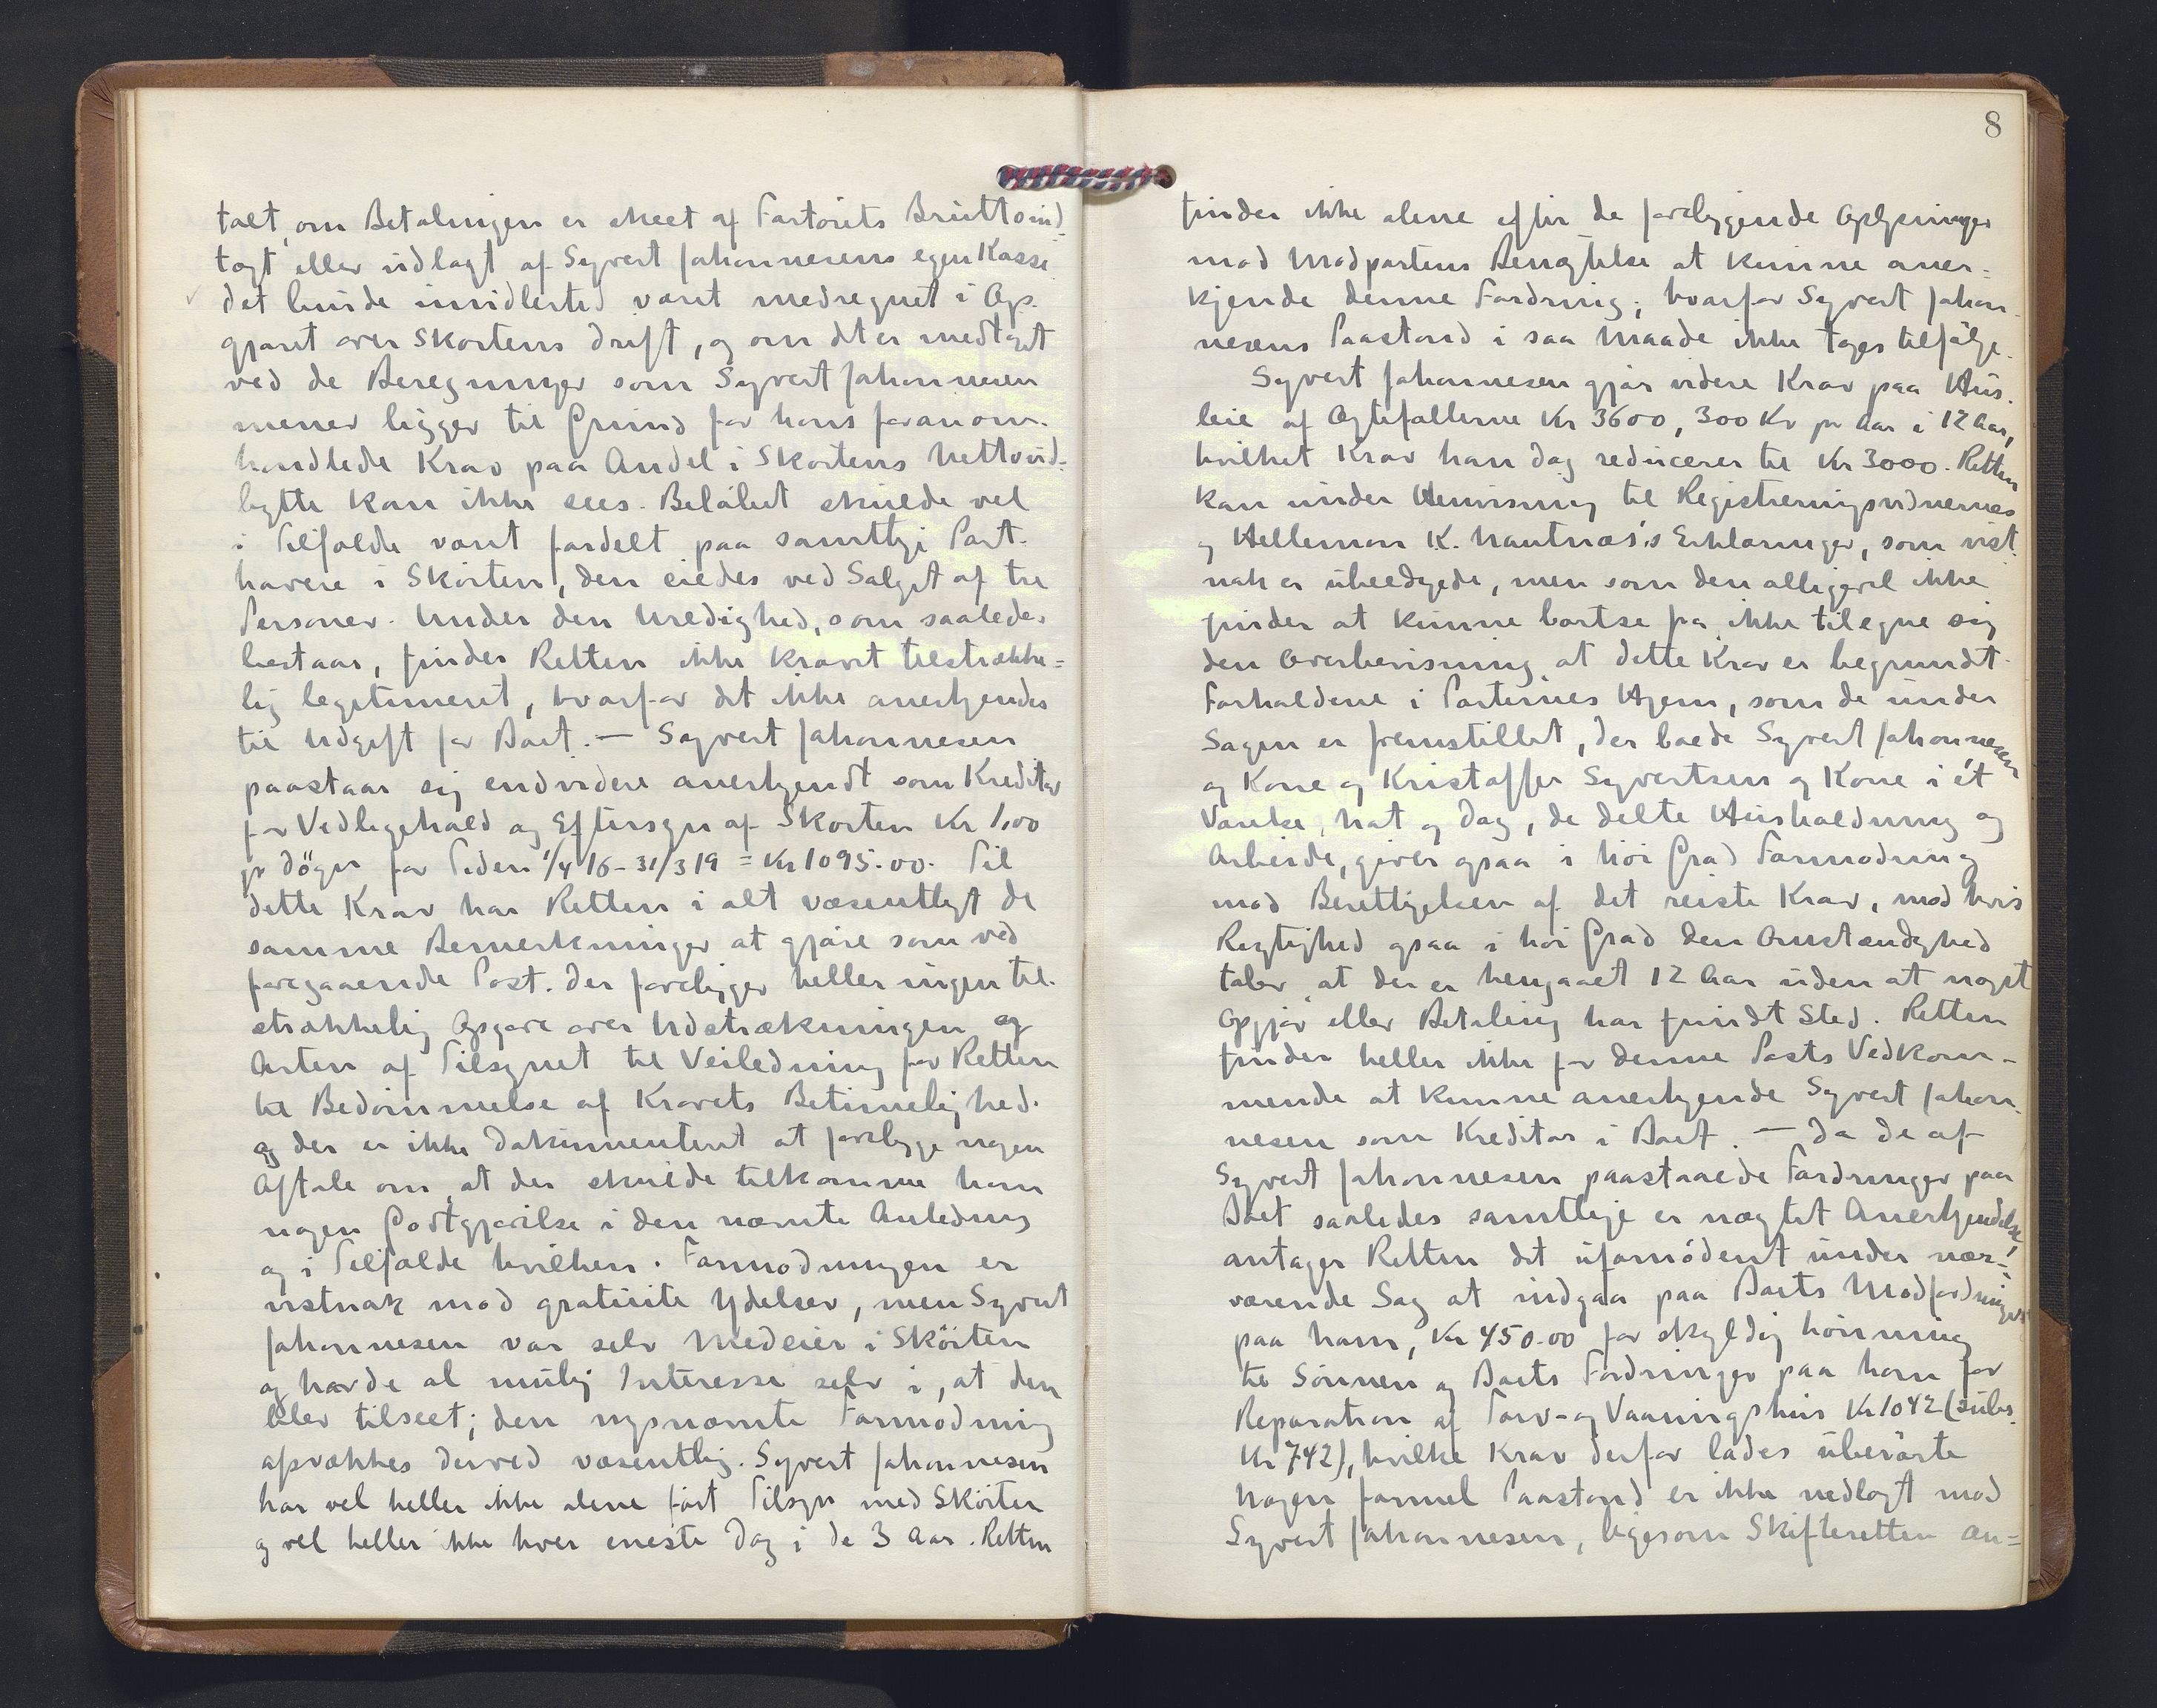 talt, om Betalingen er skeet af Fartöiets Bruttoind-
tægt eller udlagt af Syvert Johannesens egen Kasse
det burde imidlertid været medregnet i Op-
gjøret over Skøitens Drift, og om det er medtaget
ved de Beregninger som Syvert Johannesen
mener ligger til Grund for hans foranom-
handlede Krav paa Andel i Skøitens Nettoud-
bytte kan ikke sees. Beløbet skulde vel
i Tilfælde været fordelt paa samtlige Part-
havere i Skøiten, den eiedes ved Salget af tre
Personer. Under den Uredighed, som saaledes
bestaar, findes Retten ikke Kravet tilstrække-
lig legitimeret, hvorfor det ikke anerkjendes
til Udgift for Boet. — Syvert Johannesen
paastaar sig endvidere anerkjendt som Kreditor
for Vedligehold og Eftersyn af Skøiten Kr 1,00
pr Døgn for Tiden 1/4 16 - 31/3 19 = Kr 1095.00. Til
dette Krav har Retten i alt væsentligt de
samme Bemerkninger at gjøre som ved
foregaaende Post. Der foreligger heller ingen til-
strækkelig Opgave over Udstrækningen og
Arten af Tilsynet til Veiledning for Retten
til Bedømmelse af Kravets Betimelighed.
og der er ikke dokumenteret at foreligge nogen
Aftale om, at der skulde tilkomme ham
nogen Godtgjørelse i den nævnte Anledning
og i Tilfælde hvilken. Formodningen er
vistnok mod gratuite Ydelser, men Syvert
Johannesen var selv Medeier i Skøiten
og havde al mulig Interesse selv i, at den
blev tilseet; den nysnævnte Formodning
afsvækkes derved væsentlig. Syvert Johannesen
har vel heller ikke alene ført Tilsyn med Skøiten
og vel heller ikke hver eneste Dag i de 3 Aar. Retten
8
finder ikke alene efter de foreliggende Oplysninger
mod Modpartens Benægtelse at kunne aner-
kjende denne Fordring; hvorfor Syvert Johan-
nesens Paastand i saa Maade ikke tages tilfølge.
Syvert Johannesen gjør videre Krav paa Hus-
leie af Ægtefællerne Kr 3600, 300 Kr pr Aar i 12 Aar,
hvilket Krav han dog reducerer til Kr 3000. Retten
kan under Henvisning til Registreringsvidnernes
og Helleman K. Nautnæs's Erklæringer, som vist-
nok er ubeedigede, men som den alligevel ikke
finder at kunne bortse fra, ikke tilegne sig
den Overbevisning, at dette Krav er begrundet.
Forholdene i Parternes Hjem, som de under
Sagen er fremstillet, der boede Syvert Johannesen
og Kone og Kristoffer Syvertsen og Kone i ét
Værelse, nat og Dag, de delte Husholdning og
Arbeide, giver ogsaa i høi Grad Formodning
mod Berettigelsen af det reiste Krav, mod hvis
Rigtighed ogsaa i høi Grad den Omstændighed
taler, at der er hengaaet 12 Aar uden at noget
Opgjør eller Betaling har fundet Sted. Retten
finder heller ikke for denne Posts Vedkom-
mende at kunne anerkjende Syvert Johan-
nesen som Kreditor i Boet. — Da de af
Syvert Johannesen paastaaede Fordringer paa
Boet saaledes samtlige er nægtet Anerkjendelse,
antager Retten det ufornødent under nær-
værende Sag at indgaa paa Boets Modfordringer
paa ham, Kr 450.00 for skyldig hönning
til Sønnen og Boets Fordringer paa ham for
Reparation af Torv- og Vaaningshus Kr 1042 (subs.
Kr 742), hvilke Krav derfor lades uberørte
Nogen formel Paastand er ikke nedlagt mod
Syvert Johannesen, ligesom Skifteretten an-